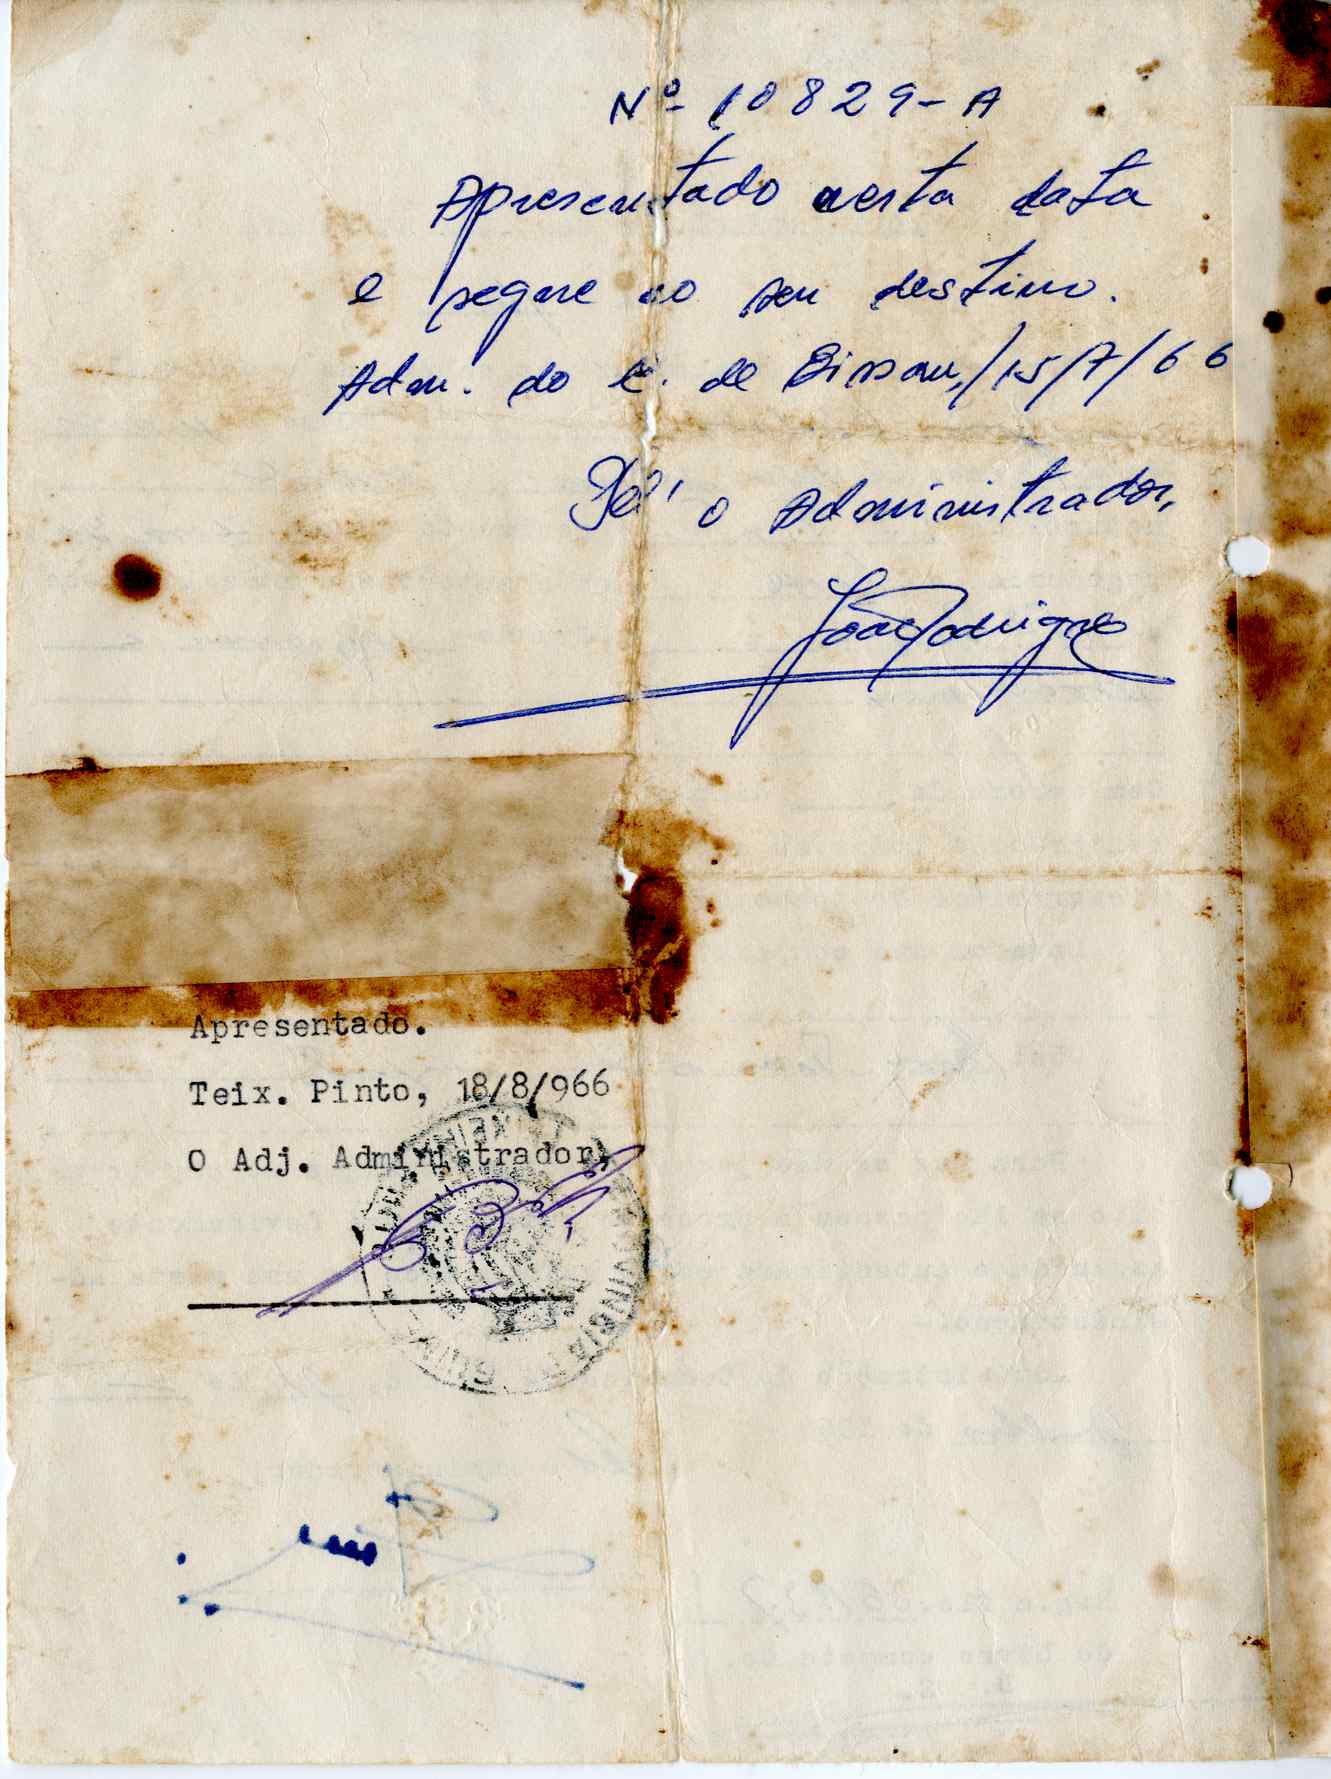 Nº 10829-A
Apresentado nesta data
e segue ao seu destino.
Adm. do C. de Bissau,/15/7/66
Pel' o Administrador,
João Rodrigues
Apresentado.
Teix. Pinto, 18/8/966
O Adj. Administrador,